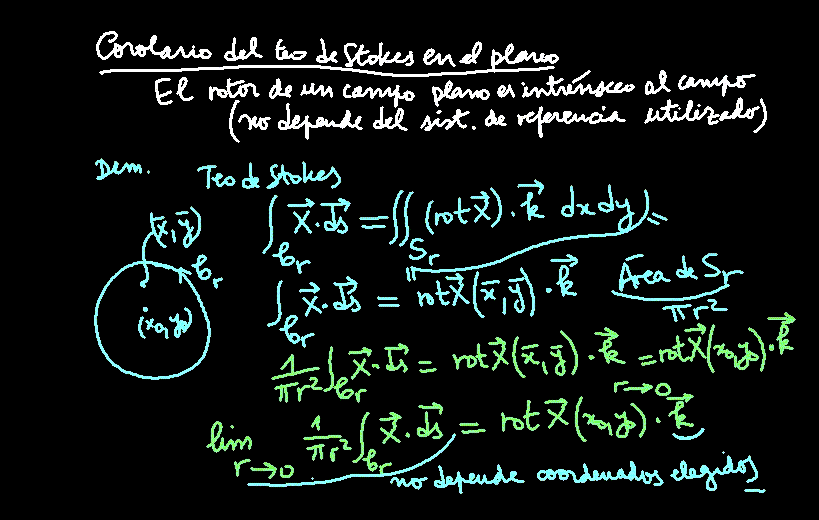 Corolario del teo de Stokes en el plano
El rotor de un campo plano es intrínseco al campo
(no depende del sist. de referencia utilizado)
Dem. Teo de Stokes
(x̄, ȳ)
𝒞r
(x₀, y₀)
∫_𝒞r X⃗ · ds⃗ = ∬_Sr (rot X⃗) · k⃗ dx dy
∫_𝒞r X⃗ · ds⃗ = rot X⃗ (x̄, ȳ) · k⃗ Área de Sr
πr²
1/πr² ∫_𝒞r X⃗ · ds⃗ = rot X⃗ (x̄, ȳ) · k⃗ = rot X⃗ (x₀, y₀) · k⃗
r→0
lim r→0 1/πr² ∫_𝒞r X⃗ · ds⃗ = rot X⃗ (x₀, y₀) · k⃗
no depende coordenados elegidos